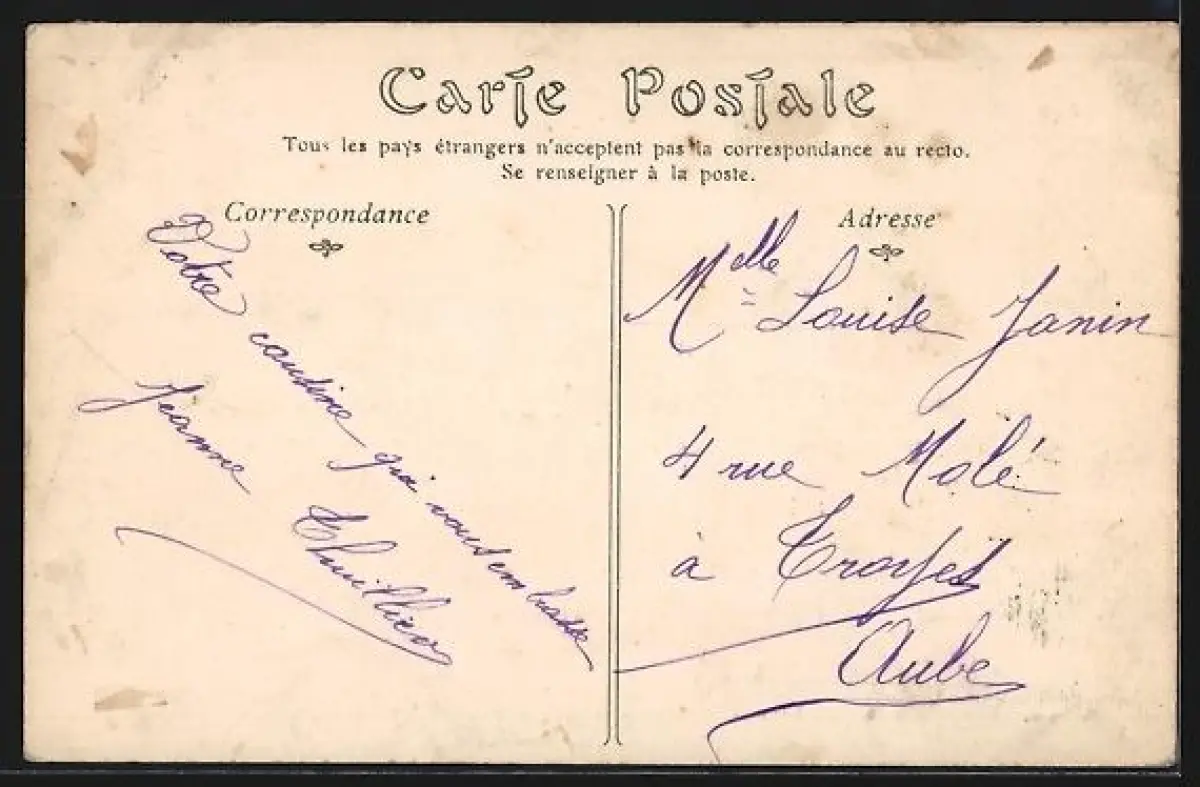 Carte Postale
Tous les pays étrangers n'acceptent pas la correspondance au recto.
Se renseigner à la poste.
Correspondance
Votre cousine qui vous embrasse
Jeanne Thuillier
Adresse
Melle Louise Janin
4 rue Molé
à Troyes
Aube